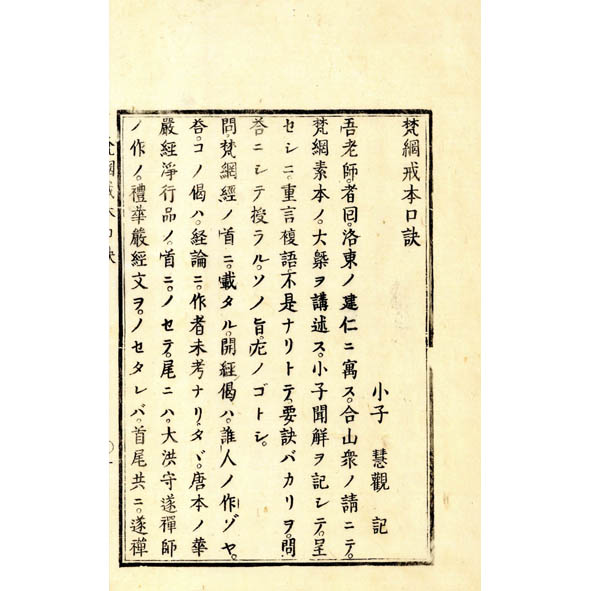 梵網戒本口訣
小子 慧觀 記
吾老師。者回。洛東ノ建仁ニ寓ス。合山衆ノ請ニテ。
梵網素本ノ。大槩ヲ講述ス。小子聞解ヲ記シテ。呈
セシニ。重言複語。不是ナリトテ。要訣バカリヲ。問
答ニシテ授ラル。ソノ旨。左ノゴトシ。
問。梵網經ノ首ニ。載タル。開經偈ハ。誰人ノ作ゾヤ。
答。コノ偈ハ。経論ニ。作者未考ナリ。タヾ。唐本ノ華
嚴經淨行品ノ。首ニ。ノセテ。尾ニハ。大洪守遂禪師
ノ作ノ。禮華嚴經文ヲ。ノセタレバ。首尾共ニ。遂禪
梵網戒本口訣